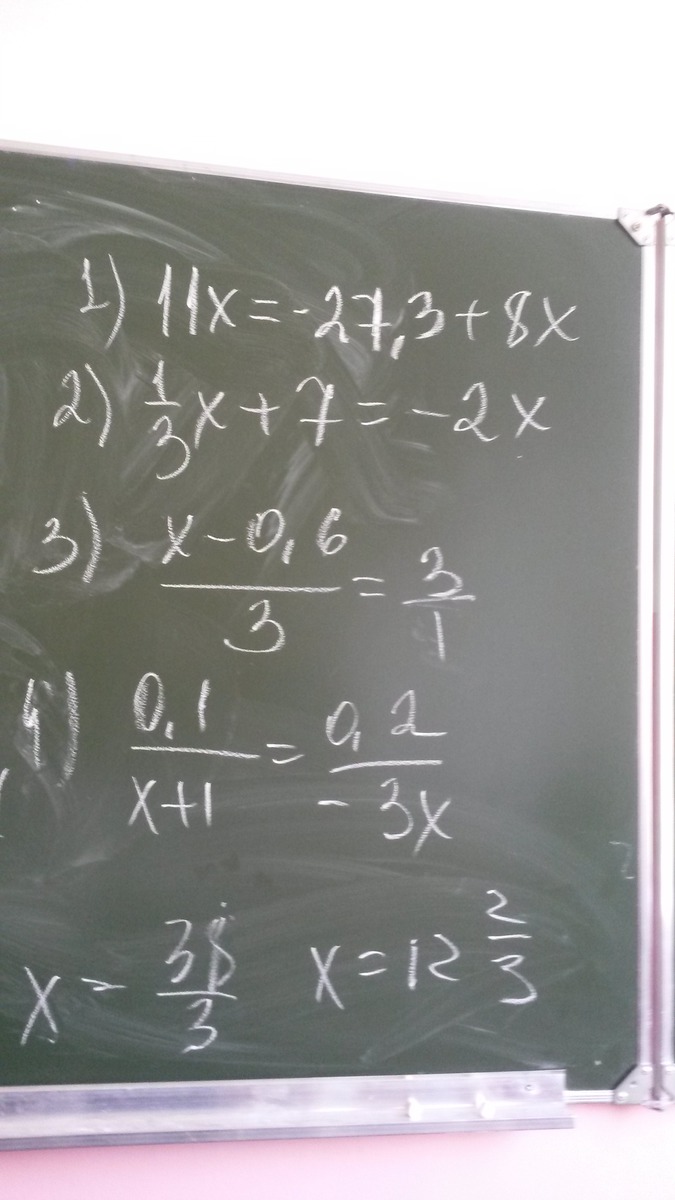 1) 11x = -27,3 + 8x
2) 1/3 x + 7 = -2x
3) (x - 0,6)/3 = 3/1
0,1/(x+1) = 0,2/(-3x)
x = 38/3 x = 12 2/3